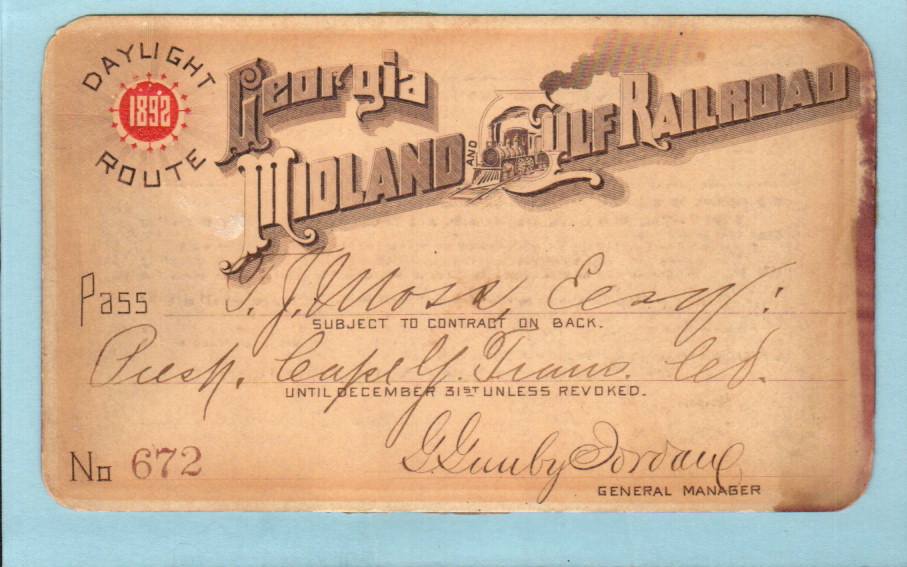 DAYLIGHT
1892
ROUTE
Georgia
MIDLAND AND GULF RAILROAD
Pass T. J. Moss, Esq:
SUBJECT TO CONTRACT ON BACK.
Prest. Cape G. Trans. Co.
UNTIL DECEMBER 31ST UNLESS REVOKED.
No 672
G Gunby Jordan
GENERAL MANAGER